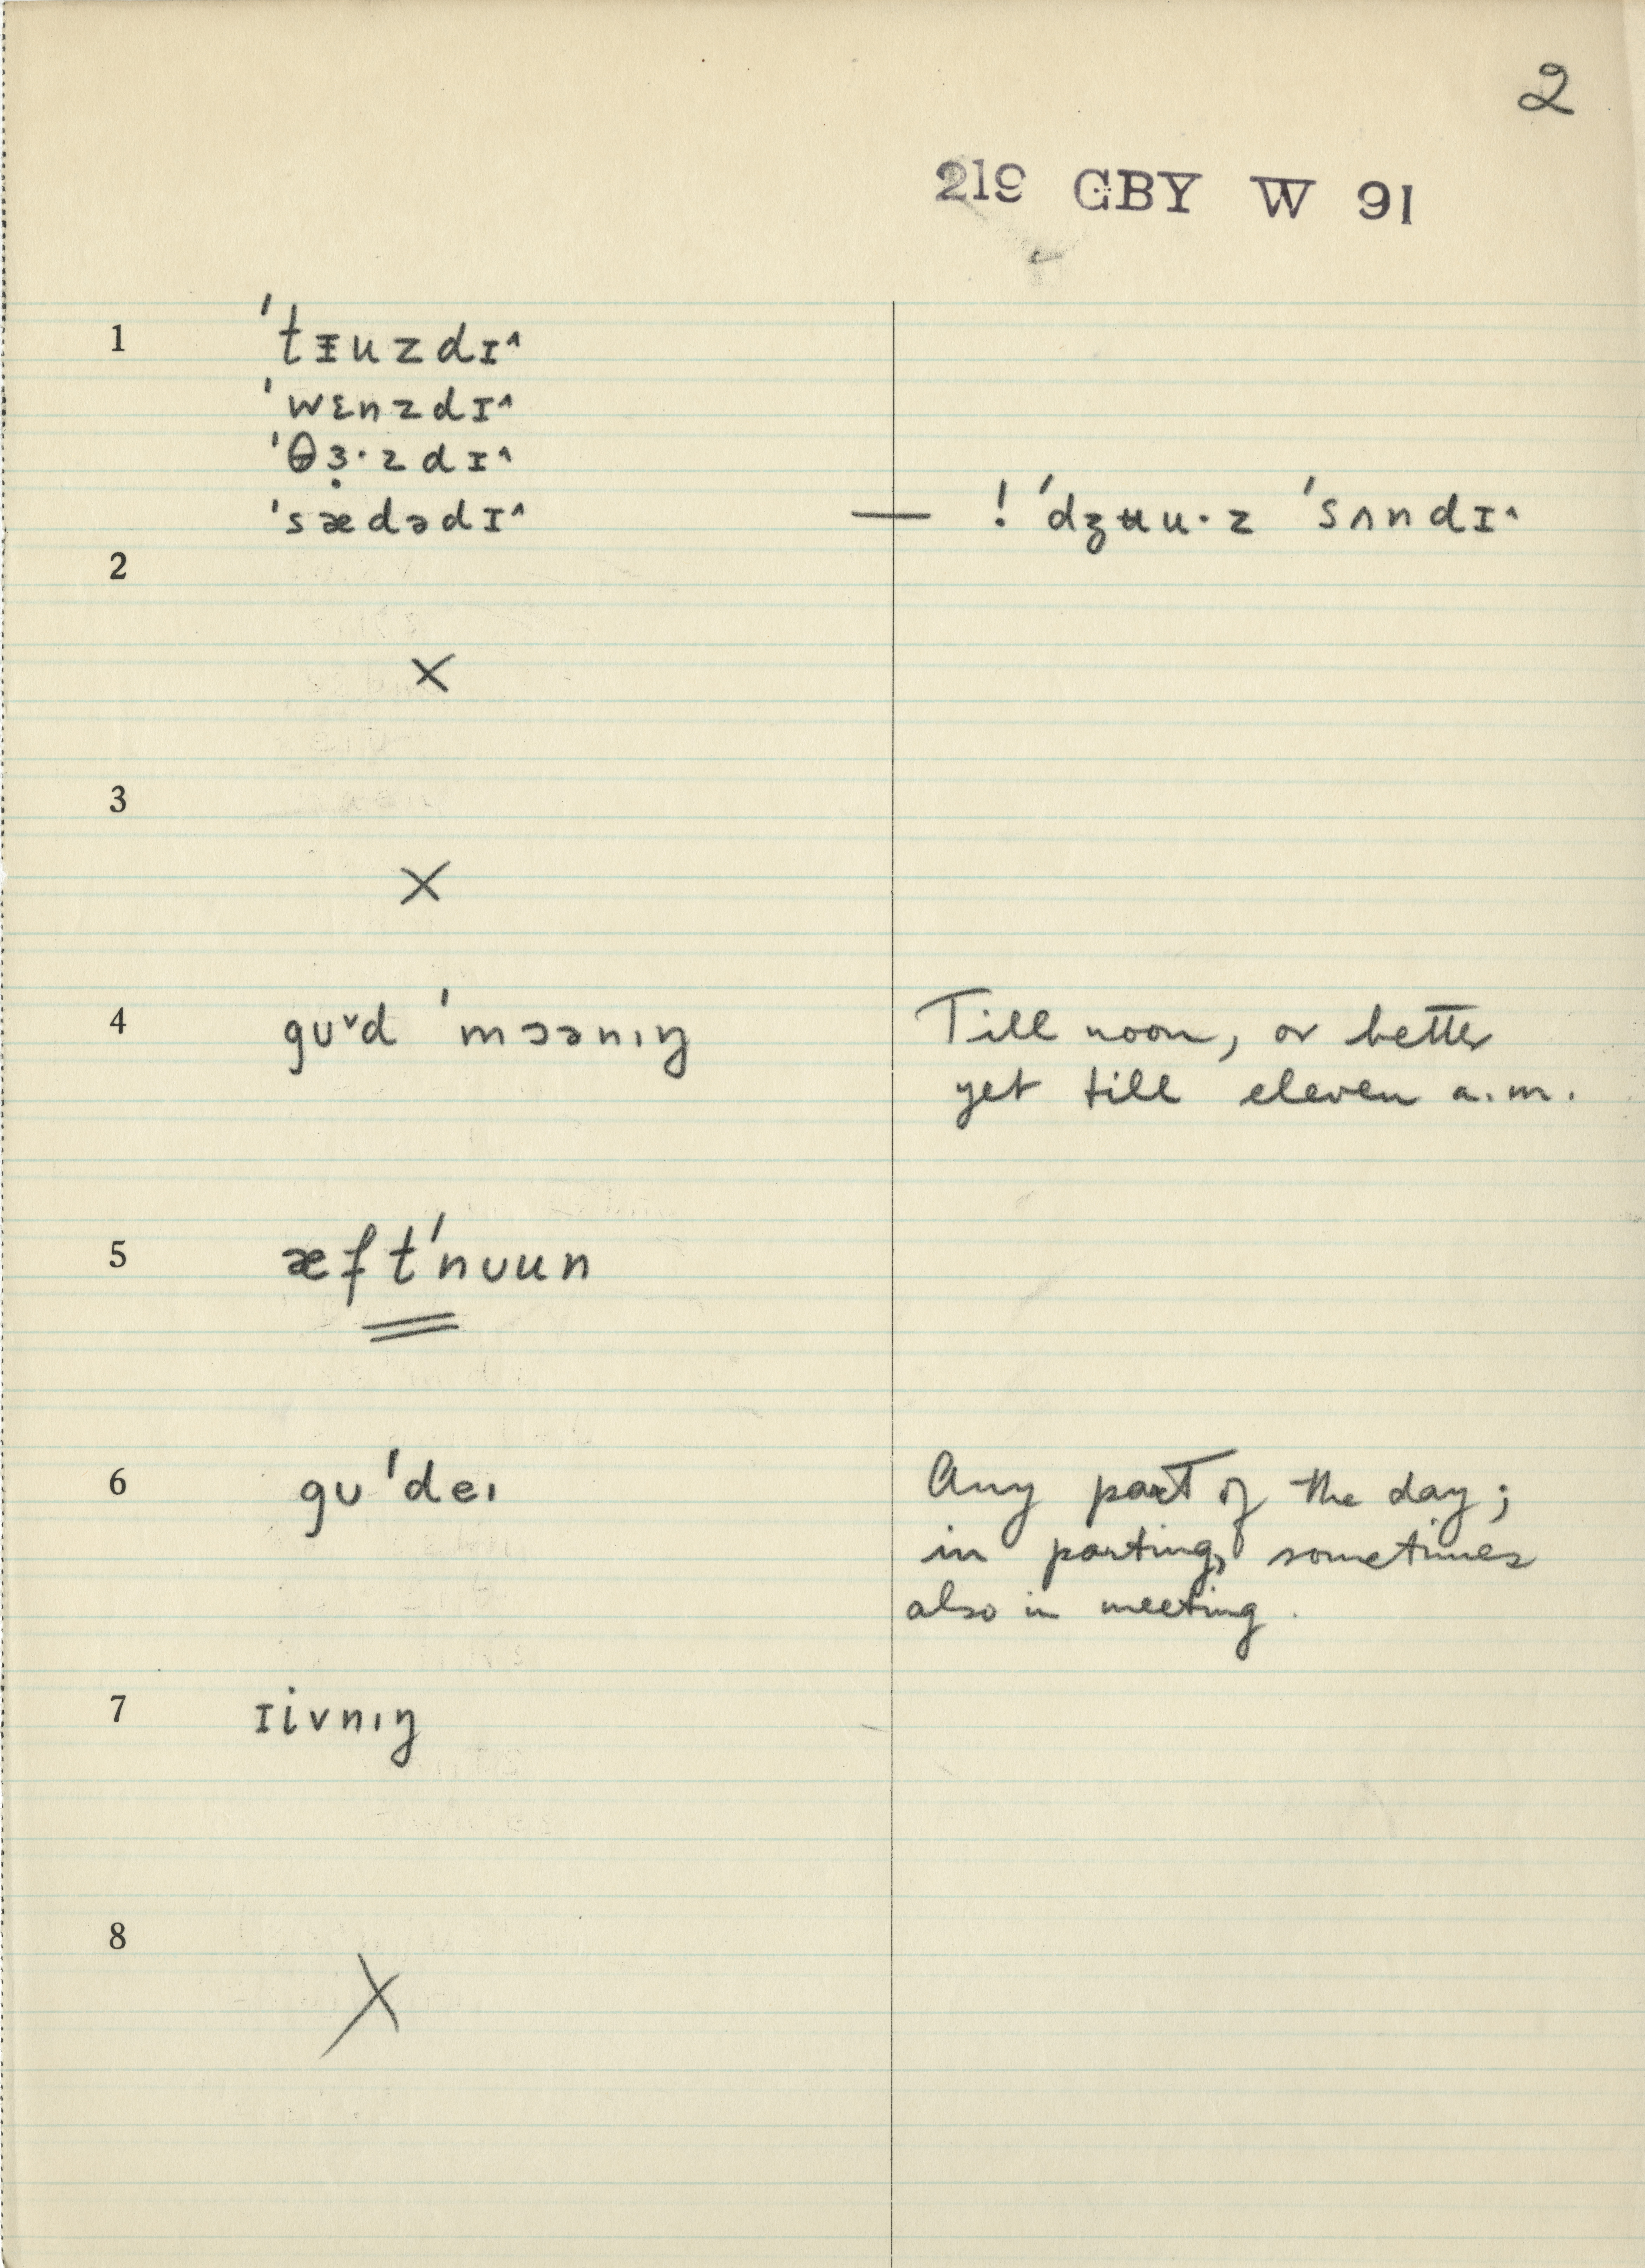 2
219 GBY W 91
1 ˈtᵻuzdɪ^
ˈwɛnzdɪ^
ˈθɜ̣·zdɪ^
ˈsædədɪ^ — ! ˈdʒʉu·z ˈsʌndɪ^
2
×
3
×
4 gʊ˅d ˈmɔənıŋ Till noon, or better
yet till eleven a.m.
5 æftˈnʊun
6 gʊˈdeı Any part of the day;
in parting, sometimes
also in meeting.
7 ɪivnıŋ
8
×